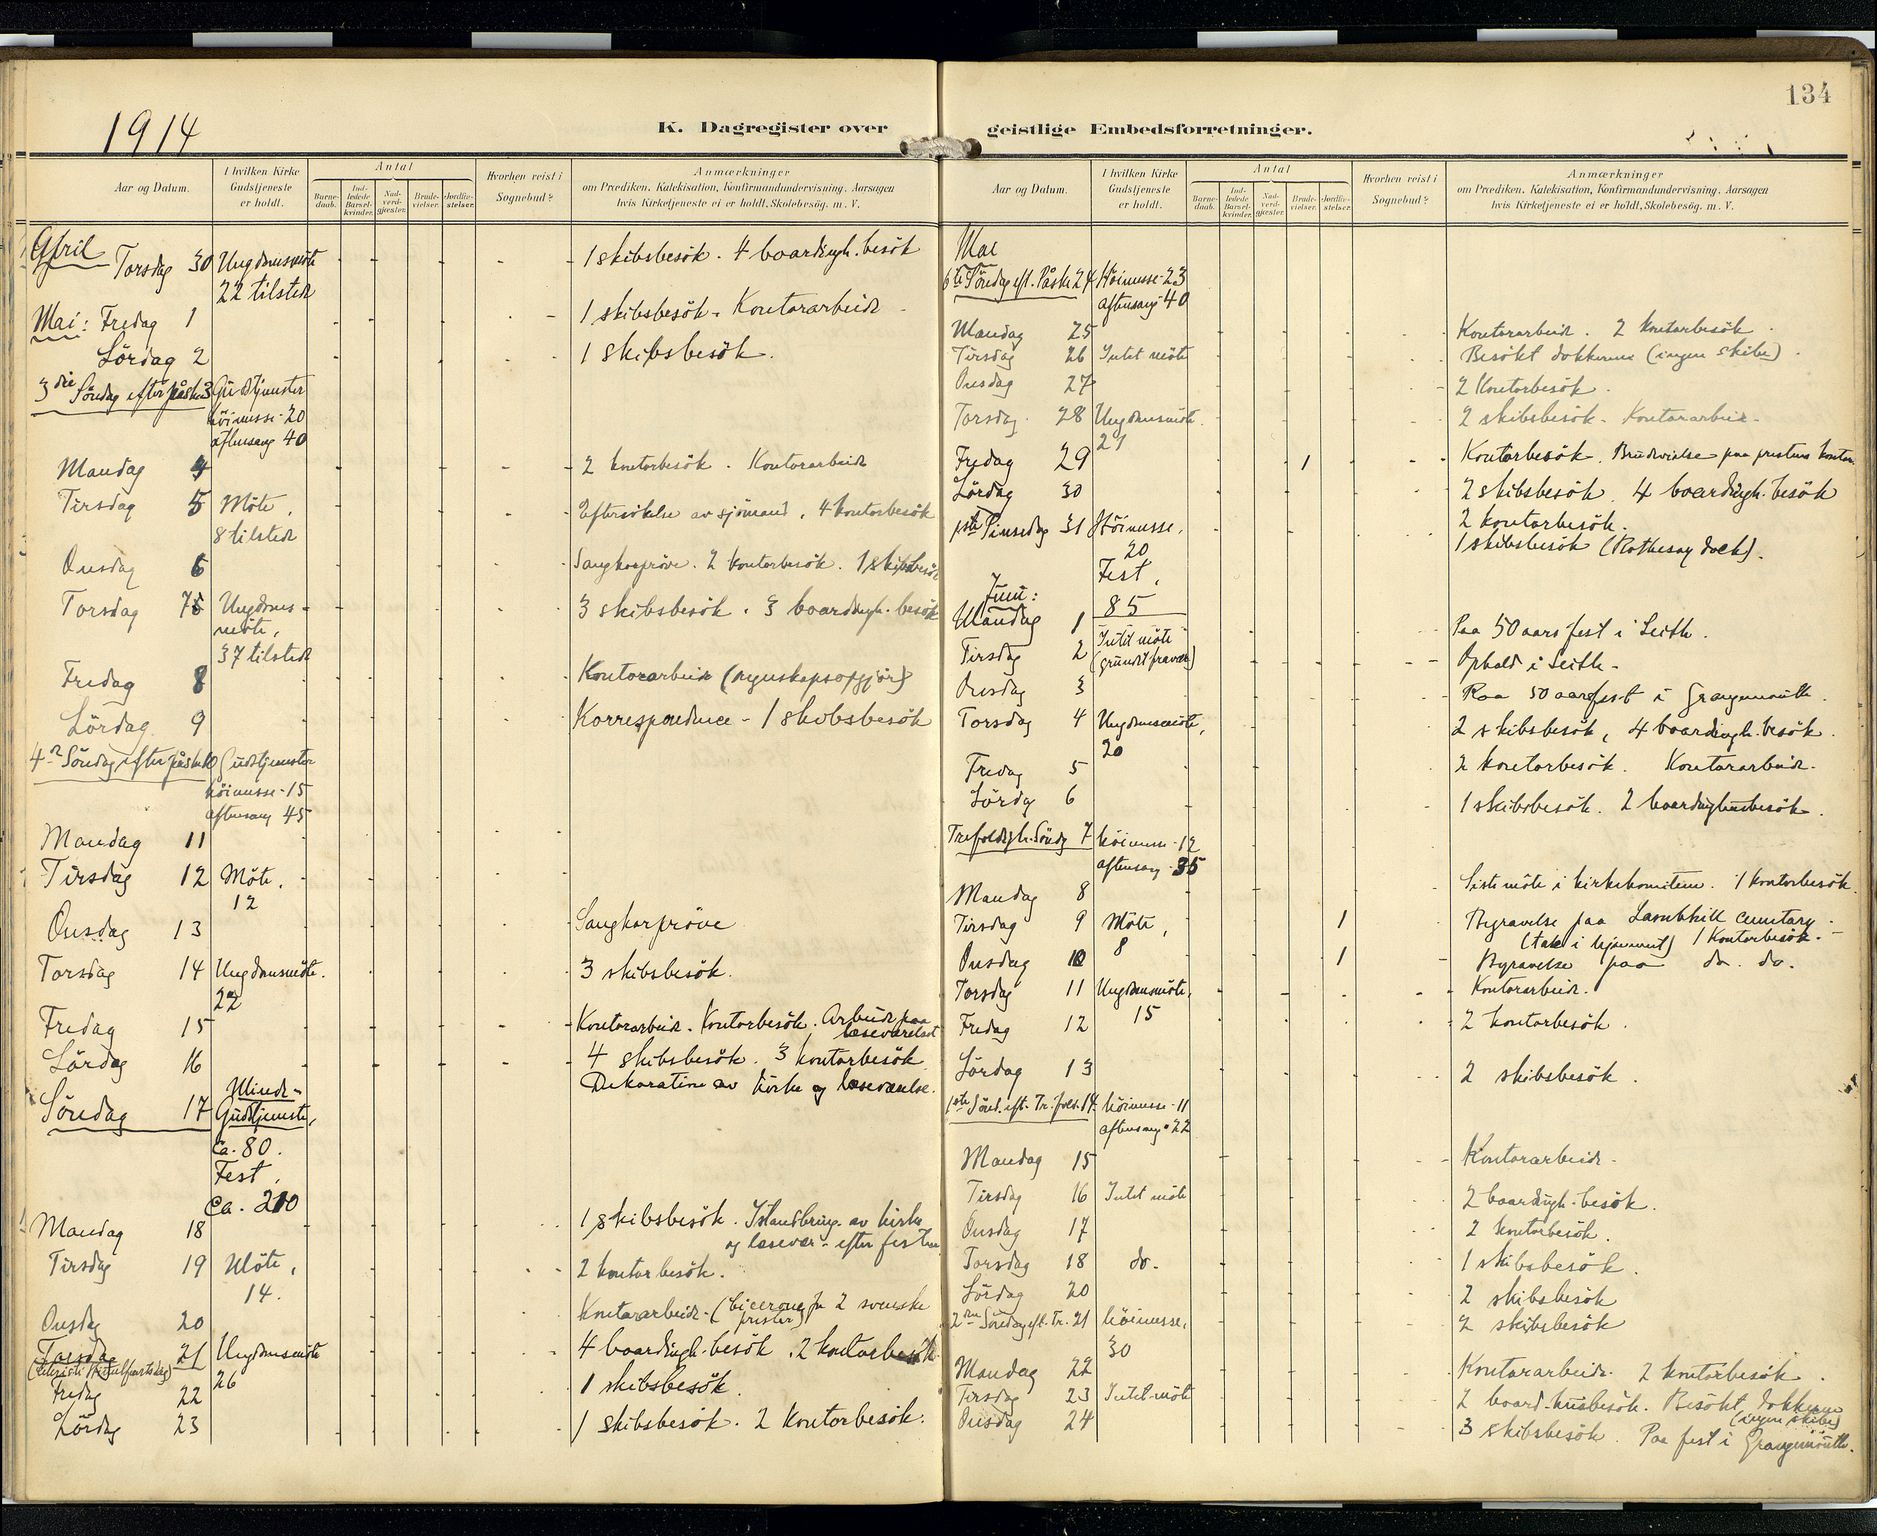 134
1914
K. Dagregister over geistlige Embedsforretninger.
Aar og Datum.
I hvilken Kirke Gudstjeneste er holdt.
Antal
Barne-daab.
Ind-ledede Barsel-kvinder.
Nad-verd-gjester.
Brude-vielser.
Jordfæ-stelser.
Hvorhen reist i Sognebud?
Anmærkninger
om Prædiken, Katekisation, Konfirmandundervisning. Aarsagen
hvis Kirketjeneste ei er holdt, Skolebesøg. m. V.
April Torsdag 30 Ungdomsmöte 1 skibsbesök. 4 boardingh. besök
22 tilstede
Mai: Fredag 1 1 skibsbesök - Kontorarbeide
Lördag 2 1 skibsbesök.
3die Söndag efter påske 3 Gudstjenester
höimesse - 20
aftensang 40
Mandag 4 2 kontorbesök. Kontorarbeide
Tirsdag 5 Möte, Eftersökelse av sjömand, 4 kontorbesök
8 tilstede
Onsdag 6 Sangkorpröve. 2 kontorbesök. 1 skibsbesök
Torsdag 7 Ungdoms- 3 skibsbesök. 3 boardingh. besök
möte,
37 tilstede
Fredag 8 Kontorarbeide (regnskapsopgjör)
Lördag 9 Korrespondance - 1 skibsbesök
4de Söndag efter påske 10 Gudstjenester
höimesse - 15
aftensang 45
Mandag 11
Tirsdag 12 Möte.
12
Onsdag 13 Sangkorpröve
Torsdag 14 Ungdomsmöte. 3 skibsbesök.
22
Fredag 15 Kontorarbeide. Kontorbesök. Arbeide paa
læseværelset
Lördag 16 4 skibsbesök. 3 kontorbesök
Dekoration av kirke og læseværelse.
Söndag 17 Minde-
Gudstjeneste,
ca. 80.
Fest,
ca. 210
Mandag 18 1 skibsbesök. Istandbring. av kirke
og læsevær. efter festen
Tirsdag 19 Möte, 2 kontorbesök.
14.
Onsdag 20 Kontorarbeide - ( for 2 svenske
prester)
Torsdag 21 Ungdomsmöte 4 boardingh. besök. 2 kontorbesök
(Kristi Himmelfartsdag) 26
Fredag 22 1 skibsbesök.
Lördag 23 1 skibsbesök. 2 kontorbesök.
Aar og Datum.
I hvilken Kirke Gudstjeneste er holdt.
Antal
Barne-daab.
Ind-ledede Barsel-kvinder.
Nad-verd-gjester.
Brude-vielser.
Jordfæ-stelser.
Hvorhen reist i Sognebud?
Anmærkninger
om Prædiken, Katekisation, Konfirmandundervisning. Aarsagen
hvis Kirketjeneste ei er holdt, Skolebesøg. m. V.
Mai
6te Söndag eft. Påske 24 Höimesse - 23
aftensang - 40
Mandag 25 Kontorarbeide. 2 kontorbesök.
Tirsdag 26 Intet möte Besökt dokkerne (ingen skibe).
Onsdag 27 2 Kontorbesök.
Torsdag 28 Ungdomsmöte. 2 skibsbesök - Kontorarbeide -
21
Fredag 29 1 Kontorbesök. Brudevielse paa prestens kontor.
Lördag 30 2 skibsbesök. 4 boardingh. besök
1ste Pinsedag 31 Höimesse, 2 kontorbesök.
20 1 skibsbesök (Rothesay Dock).
Fest,
85
Juni:
Mandag 1 Paa 50 aars fest i Leith.
Tirsdag 2 Intet möte (grundet fravær) Ophold i Leith -
Onsdag 3 Paa 50 aarsfest i Grangemouth.
Torsdag 4 Ungdomsmöte, 2 skibsbesök, 4 boardingh. besök.
20
Fredag 5 2 kontorbesök. Kontorarbeide.
Lördag 6 1 skibsbesök. 2 boardinghusbesök.
Trefoldigh. Söndag 7 höimesse - 12
aftensang - 35
Mandag 8 Siste möte i kirkekomiteen. 1 kontorbesök.
Tirsdag 9 Möte, 1 Begravelse paa Lambhill cemetary -
8 (tale i hjemmet) 1 Kontorbesök. -
Onsdag 10 1 Begravelse paa do. do.
Torsdag 11 Ungdomsmöte, Kontorarbeide.
15
Fredag 12 2 kontorbesök.
Lördag 13 2 skibsbesök.
1ste Sönd. eft. Tr. fold. 14 höimesse - 11
aftensang - 22
Mandag 15 Kontorarbeide -
Tirsdag 16 Intet möte 2 boardingh. besök.
Onsdag 17 2 kontorbesök.
Torsdag 18 do. 1 skibsbesök.
Lördag 20 2 skibsbesök
2den Söndag eft. Tr. 21 höimesse, 2 skibsbesök
30
Mandag 22 Kontorarbeide. 2 kontorbesök.
Tirsdag 23 Intet möte 2 board. husbesök. Besökt dokkerne
(ingen skibe)
Onsdag 24 3 skibsbesök. Paa fest i Grangemouth.